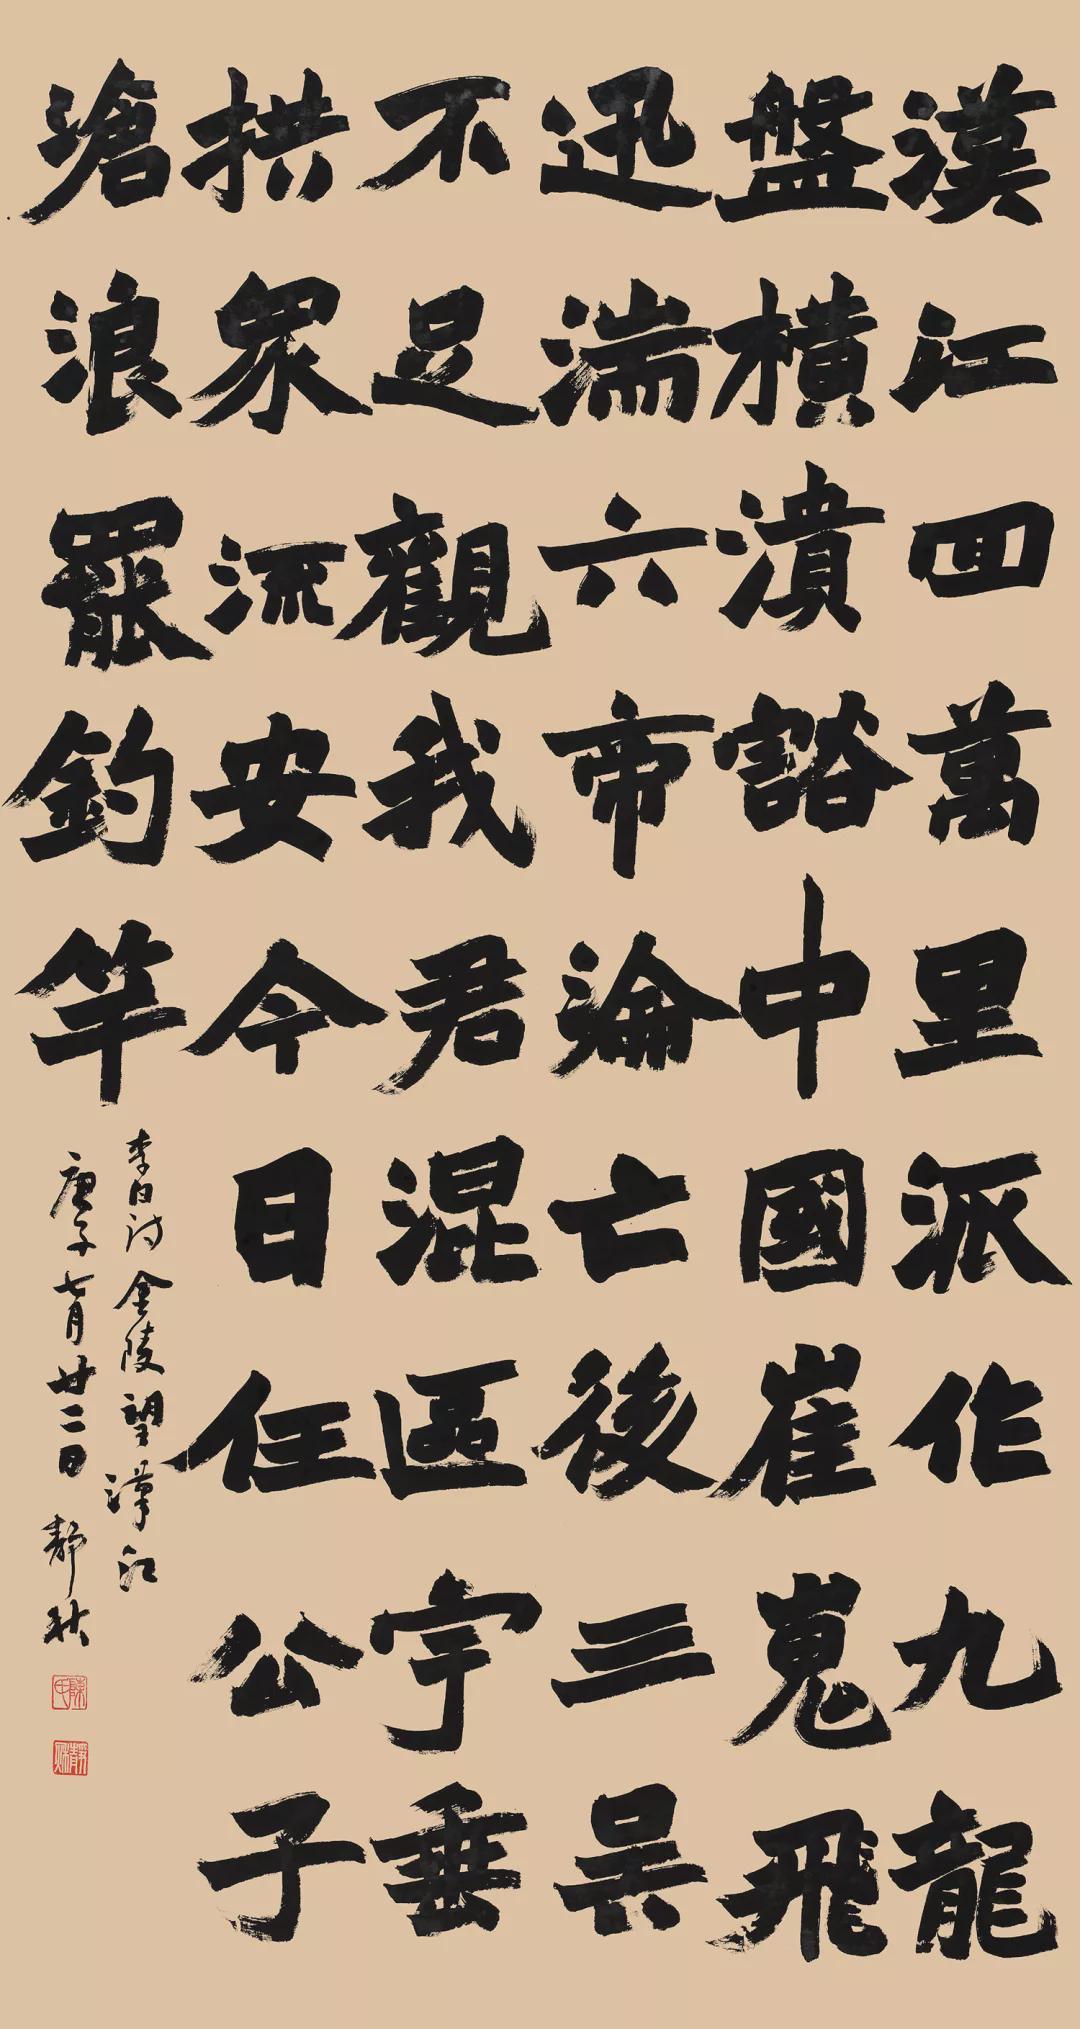 漢江回萬里派作九龍
盤橫潰豁中國崔嵬飛
迅湍六帝淪亡後三吳
不足觀我君混區宇垂
拱眾流安今日任公子
滄浪罷釣竿
李白詩金陵望漢江
庚子七月廿二日靜秋
陳氏
靜秋